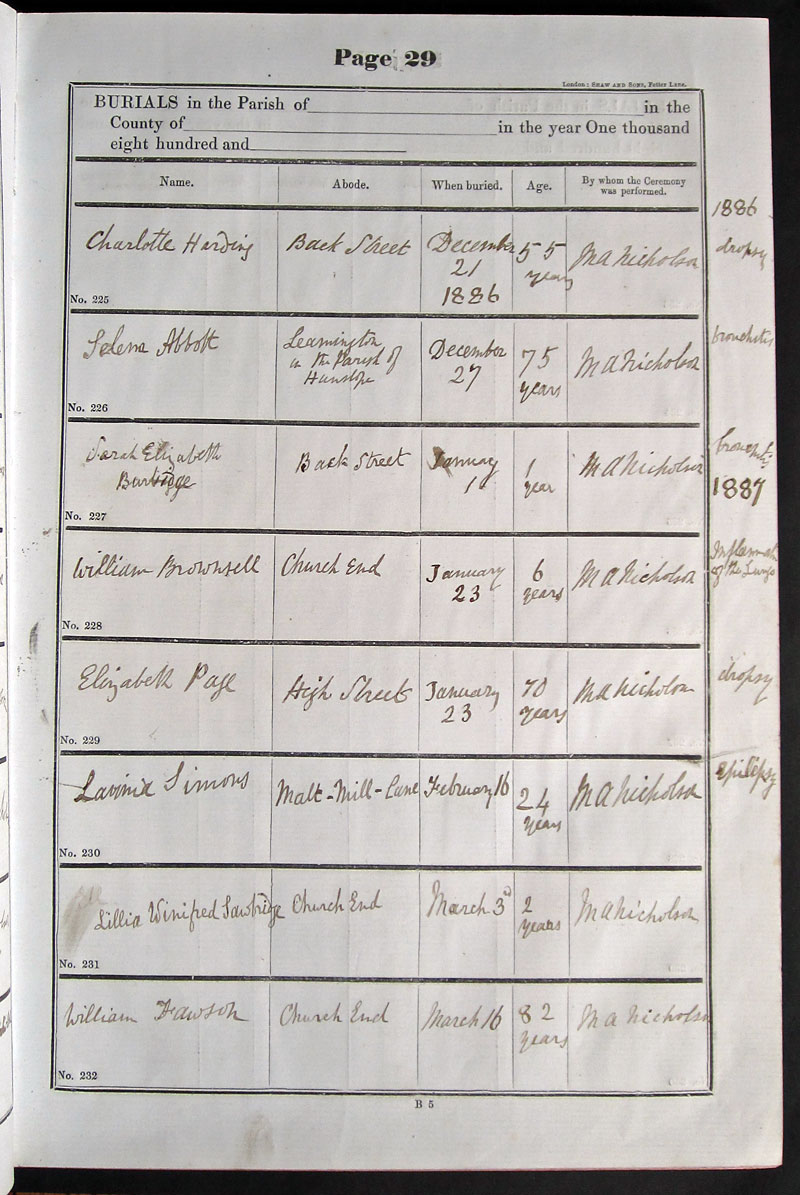 Page 29
London: SHAW AND SONS, Fetter Lane.
BURIALS in the Parish of in the
County of in the year One thousand
eight hundred and
Name. Abode. When buried. Age. By whom the Ceremony was performed.
1886
Charlotte Harding Back Street December 21 1886 55 years M A Nicholson dropsy
No. 225
Selena Abbott Leamington in the Parish of Hanslope December 27 75 years M A Nicholson bronchitis
No. 226
Sarah Elizabeth Burbidge Back Street January 1 1 year M A Nicholson bronchitis
1887
No. 227
William Brownsell Church End January 23 6 years M A Nicholson Inflammat of the Lungs
No. 228
Elizabeth Page High Street January 23 70 years M A Nicholson dropsy
No. 229
Lavinia Simons Malt-Mill-Lane February 16 24 years M A Nicholson Epilepsy
No. 230
Lillia Winifred Sawbridge Church End March 3d 2 years M A Nicholson
No. 231
William Dawson Church End March 16 82 years M A Nicholson
No. 232
B 5